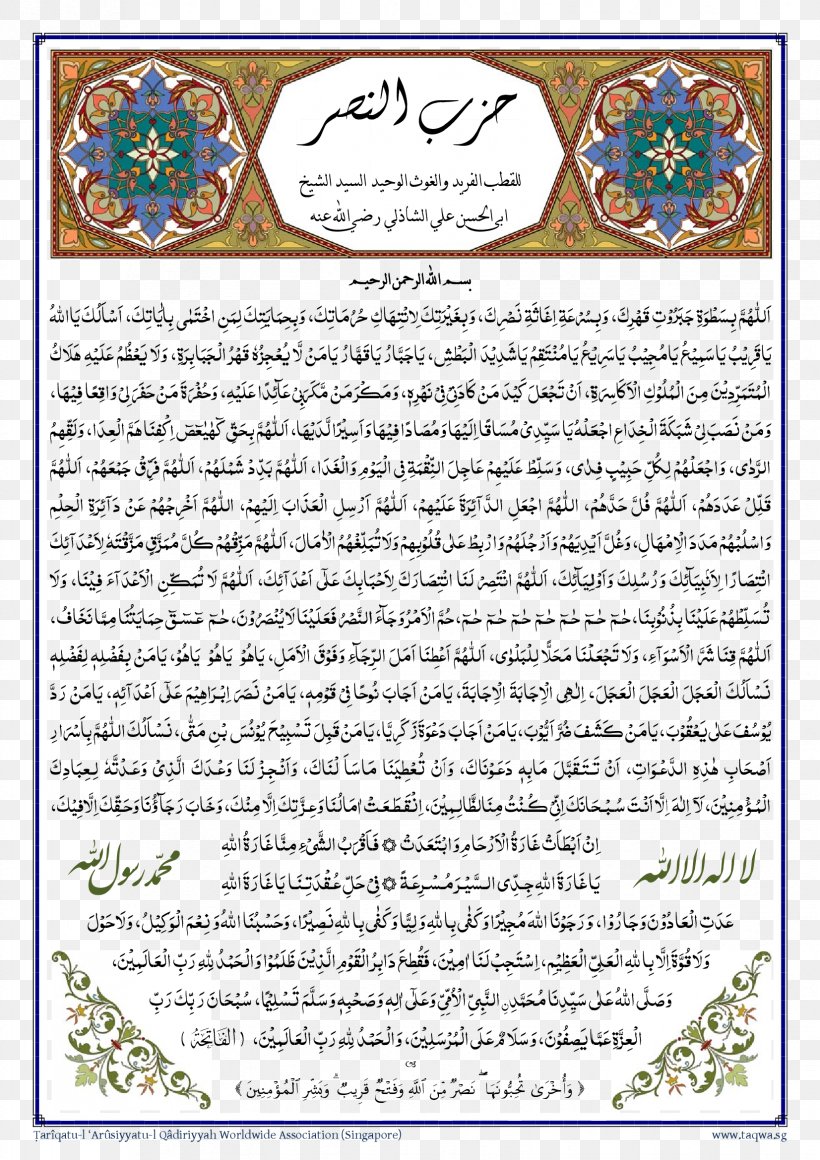 حزب النصر
للقطب الفريد والغوث الوحيد السيد الشيخ
ابى الحسن علي الشاذلي رضي الله عنه
بسم الله الرحمن الرحيم
اَللّٰهُمَّ بِسَطْوَةِ جَبَرُوْتِ قَهْرِكَ، وَبِسُرْعَةِ اِغَاثَةِ نَصْرِكَ، وَبِغَيْرَتِكَ لِانْتِهَاكِ حُرُمَاتِكَ، وَبِحِمَايَتِكَ لِمَنِ احْتَمٰى بِاٰيَاتِكَ، اَسْأَلُكَ يَا اللهُ
يَاقَرِيْبُ يَاسَمِيْعُ يَامُجِيْبُ يَاسَرِيْعُ يَامُنْتَقِمُ يَاشَدِيْدَ الْبَطْشِ، يَاجَبَّارُ يَاقَهَّارُ يَامَنْ لَا يُعْجِزُهُ قَهْرُ الْجَبَابِرَةِ، وَلَا يَعْظُمُ عَلَيْهِ هَلَاكُ
الْمُتَمَرِّدِيْنَ مِنَ الْمُلُوْكِ الْاَكَاسِرَةِ، اَنْ تَجْعَلَ كَيْدَ مَنْ كَادَنِيْ فِيْ نَحْرِهِ، وَمَكْرَ مَنْ مَّكَرَبِيْ عَآئِدًا عَلَيْهِ، وَحُفْرَةَ مَنْ حَفَرَ لِيْ وَاقِعًا فِيْهَا،
وَمَنْ نَصَبَ لِيْ شَبَكَةَ الْخِدَاعِ اجْعَلْهُ يَا سَيِّدِيْ مُسَاقًا اِلَيْهَا وَمُصَادًا فِيْهَا وَاَسِيْرًا لَدَيْهَا، اَللّٰهُمَّ بِحَقِّ كٓهٰيٰعٓصٓ اِكْفِنَا هَمَّ الْعِدَا، وَلَقِّهِمُ
الرَّدٰى، وَاجْعَلْهُمْ لِكُلِّ حَبِيْبٍ فِدٰى، وَسَلِّطْ عَلَيْهِمْ عَاجِلَ النِّقْمَةِ فِى الْيَوْمِ وَالْغَدَا، اَللّٰهُمَّ بَدِّدْ شَمْلَهُمْ، اَللّٰهُمَّ فَرِّقْ جَمْعَهُمْ، اَللّٰهُمَّ
قَلِّلْ عَدَدَهُمْ، اَللّٰهُمَّ فُلَّ حَدَّهُمْ، اَللّٰهُمَّ اجْعَلِ الدَّآئِرَةَ عَلَيْهِمْ، اَللّٰهُمَّ اَرْسِلِ الْعَذَابَ اِلَيْهِمْ، اَللّٰهُمَّ اَخْرِجْهُمْ عَنْ دَآئِرَةِ الْحِلْمِ
وَاسْلُبْهُمْ مَدَدَ الْاِمْهَالِ، وَغُلَّ اَيْدِيَهُمْ وَاَرْجُلَهُمْ وَارْبِطْ عَلٰى قُلُوْبِهِمْ وَلَا تُبَلِّغْهُمُ الْاٰمَالَ، اَللّٰهُمَّ مَزِّقْهُمْ كُلَّ مُمَزَّقٍ مَزَّقْتَهُ لِاَعْدَآئِكَ
انْتِصَارًا لِاَنْبِيَآئِكَ وَرُسُلِكَ وَاَوْلِيَآئِكَ، اَللّٰهُمَّ انْتَصِرْ لَنَا انْتِصَارَكَ لِاَحْبَابِكَ عَلٰى اَعْدَآئِكَ، اَللّٰهُمَّ لَا تُمَكِّنِ الْاَعْدَآءَ فِيْنَا، وَلَا
تُسَلِّطْهُمْ عَلَيْنَا بِذُنُوْبِنَا، حٰمٓ حٰمٓ حٰمٓ حٰمٓ حٰمٓ حٰمٓ حٰمٓ، حُمَّ الْاَمْرُ وَجَآءَ النَّصْرُ فَعَلَيْنَا لَا يُنْصَرُوْنَ، حٰمٓ عٓسٓقٓ حِمَايَتُنَا مِمَّا نَخَافُ،
اَللّٰهُمَّ قِنَا شَرَّ الْاَسْوَآءِ، وَلَا تَجْعَلْنَا مَحَلًّا لِلْبَلْوٰى، اَللّٰهُمَّ اَعْطِنَا اَمَلَ الرَّجَآءِ وَفَوْقَ الْاَمَلِ، يَاهُوْ يَاهُوْ يَاهُوْ، يَامَنْ بِفَضْلِهٖ لِفَضْلِهٖ
نَسْأَلُكَ الْعَجَلَ الْعَجَلَ الْعَجَلَ، اِلٰهِى الْاِجَابَةَ الْاِجَابَةَ، يَامَنْ اَجَابَ نُوْحًا فِيْ قَوْمِهٖ، يَامَنْ نَصَرَ اِبْرَاهِيْمَ عَلٰى اَعْدَآئِهٖ، يَامَنْ رَدَّ
يُوْسُفَ عَلٰى يَعْقُوْبَ، يَامَنْ كَشَفَ ضُرَّ اَيُّوْبَ، يَامَنْ اَجَابَ دَعْوَةَ زَكَرِيَّا، يَامَنْ قَبِلَ تَسْبِيْحَ يُوْنُسَ بْنِ مَتّٰى، نَسْأَلُكَ اللّٰهُمَّ بِاَسْرَارِ
اَصْحَابِ هٰذِهِ الدَّعَوَاتِ، اَنْ تَتَقَبَّلَ مَابِهٖ دَعَوْنَاكَ، وَاَنْ تُعْطِيَنَا مَاسَأَلْنَاكَ، وَاَنْجِزْ لَنَا وَعْدَكَ الَّذِيْ وَعَدْتَهُ لِعِبَادِكَ
الْمُؤْمِنِيْنَ، لَآ اِلٰهَ اِلَّآ اَنْتَ سُبْحَانَكَ اِنِّيْ كُنْتُ مِنَ الظَّالِمِيْنَ، اِنْقَطَعَتْ اٰمَالُنَا وَعِزَّتِكَ اِلَّا مِنْكَ، وَخَابَ رَجَآؤُنَا وَحَقِّكَ اِلَّا فِيْكَ،
اِنْ اَبْطَأَتْ غَارَةُ الْاَرْحَامِ وَابْتَعَدَتْ ۞ فَاَقْرَبُ الشَّيْءِ مِنَّا غَارَةُ اللهِ
لا اله الا الله
محمد رسول الله
يَا غَارَةَ اللهِ جِدِّى السَّيْرَ مُسْرِعَةً ۞ فِيْ حَلِّ عُقْدَتِنَا يَا غَارَةَ اللهِ
عَدَتِ الْعَادُوْنَ وَجَارُوْا، وَرَجَوْنَا اللهَ مُجِيْرًا وَكَفٰى بِاللهِ وَلِيًّا وَكَفٰى بِاللهِ نَصِيْرًا، وَحَسْبُنَا اللهُ وَنِعْمَ الْوَكِيْلُ، وَلَا حَوْلَ
وَلَا قُوَّةَ اِلَّا بِاللهِ الْعَلِيِّ الْعَظِيْمِ، اِسْتَجِبْ لَنَا اٰمِيْنَ، فَقُطِعَ دَابِرُ الْقَوْمِ الَّذِيْنَ ظَلَمُوْا وَالْحَمْدُ لِلهِ رَبِّ الْعَالَمِيْنَ،
وَصَلَّى اللهُ عَلٰى سَيِّدِنَا مُحَمَّدِنِ النَّبِيِّ الْاُمِّيِّ وَعَلٰى اٰلِهٖ وَصَحْبِهٖ وَسَلَّمَ تَسْلِيْمًا، سُبْحَانَ رَبِّكَ رَبِّ
الْعِزَّةِ عَمَّا يَصِفُوْنَ، وَسَلَامٌ عَلَى الْمُرْسَلِيْنَ، وَالْحَمْدُ لِلهِ رَبِّ الْعَالَمِيْنَ، ( الْفَاتِحَةُ )
﴿ وَأُخْرَىٰ تُحِبُّونَهَا ۖ نَصْرٌ مِّنَ اللَّهِ وَفَتْحٌ قَرِيبٌ ۗ وَبَشِّرِ الْمُؤْمِنِينَ ﴾
Tarîqatu-l 'Arûsiyyatu-l Qâdiriyyah Worldwide Association (Singapore)
www.taqwa.sg